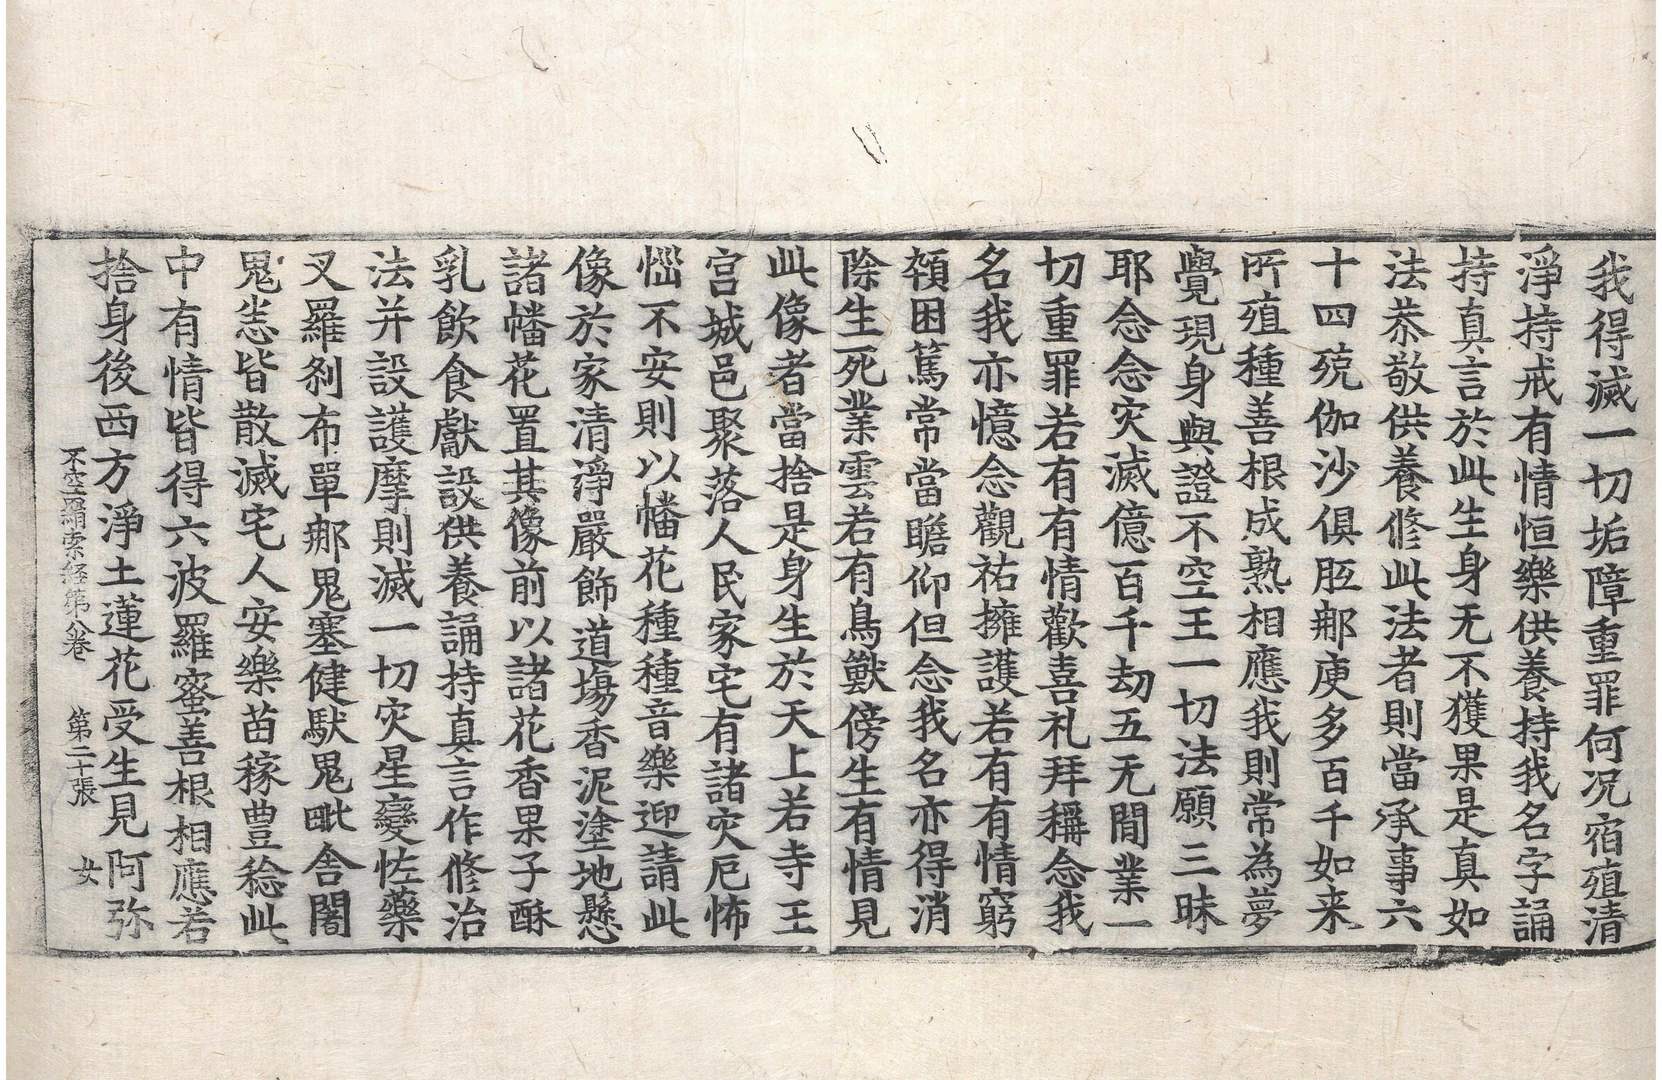 我得滅一切垢障重罪何況宿殖清
淨持戒有情恒樂供養持我名字誦
持真言於此生身无不獲果是真如
法恭敬供養修此法者則當承事六
十四殑伽沙俱胝那庾多百千如来
所殖種善根成熟相應我則常為夢
覺現身與證不空王一切法願三昧
耶念念灾滅億百千劫五无間業一
切重罪若有有情歡喜礼拜稱念我
名我亦憶念觀祐擁護若有有情窮
顇困篤常當瞻仰但念我名亦得消
除生死業雲若有鳥獸傍生有情見
此像者當捨是身生於天上若寺王
宫城邑聚落人民家宅有諸灾厄怖
惱不安則以幡花種種音樂迎請此
像於家清淨嚴飾道塲香泥塗地懸
諸幡花置其像前以諸花香果子酥
乳飲食獻設供養誦持真言作修治
法并設護摩則滅一切灾星變恠藥
叉羅刹布單那鬼塞健馱鬼毗舍闍
鬼恙皆散滅宅人安樂苗稼豊稔此
中有情皆得六波羅蜜善根相應若
捨身後西方淨土蓮花受生見阿弥
不空羂索経第八卷 第二十張 女